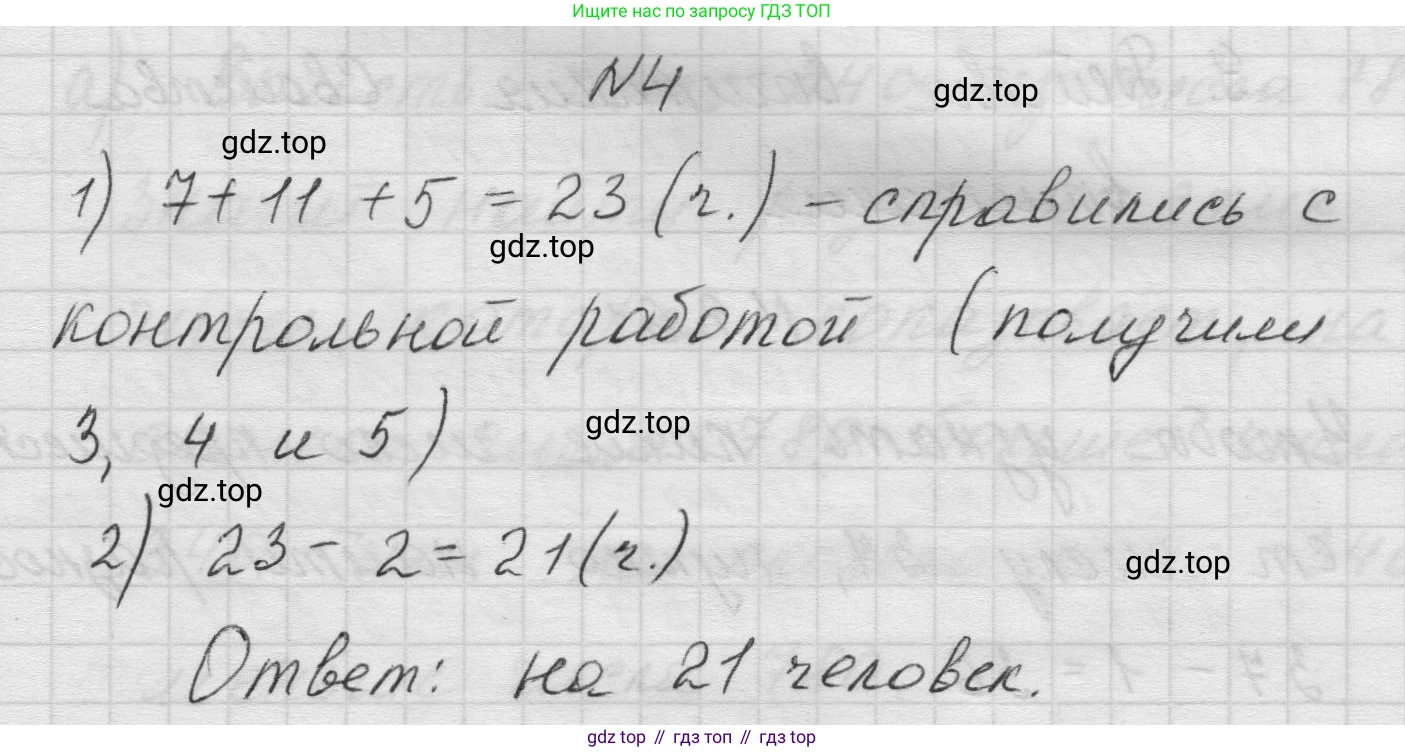 Ищите нас по запросу ГДЗ ТОП
N4
gdz.top
gdz.top
1) 7+11+5 = 23 (ч.) - справились с
gdz.top
контрольной работой (получили
3, 4 и 5)
gdz.top
gdz.top
2) 23 - 2 = 21 (ч.)
gdz.top
Ответ: на 21 человек.
gdz top // гдз топ // гдз top